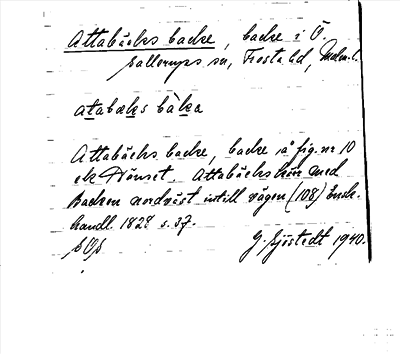 Attabäcks backe, backe i Ö.
Sallerups sn, Frosta hd, Malm. l.
atabæks bàka
Attabäcks backe, backe å fig. nr 10
ek Hönset. Attabäckshus med
Backen nordväst intill vägen (108) Ensk.
handl. 1828 s. 37.
G. Sjöstedt 1940.